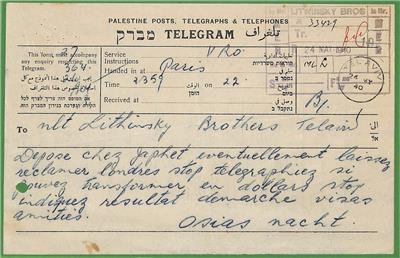 PALESTINE POSTS, TELEGRAPHS & TELEPHONES
מברק TELEGRAM تلغراف
LITWINSKY BROS
33429
This form must accompany
any enquiry respecting this
Telegram.
Service
Instructions
VRO
הוראות שרותיות
Handed in at
Paris
נמסר ב
Time
2359
الوقت
הזמן
22
Received at
נתקבל ב
24 MAI 1940
Tr.
TEL AVIV
40
To
nlt Lithinsky Brothers Telaviv
אל
Depose chez Japhet eventuellement laissez
reclamer londres stop telegraphiez si
pouvez transformer en dollars stop
indiquez resultat demarche visas
amities.
Osias nacht.